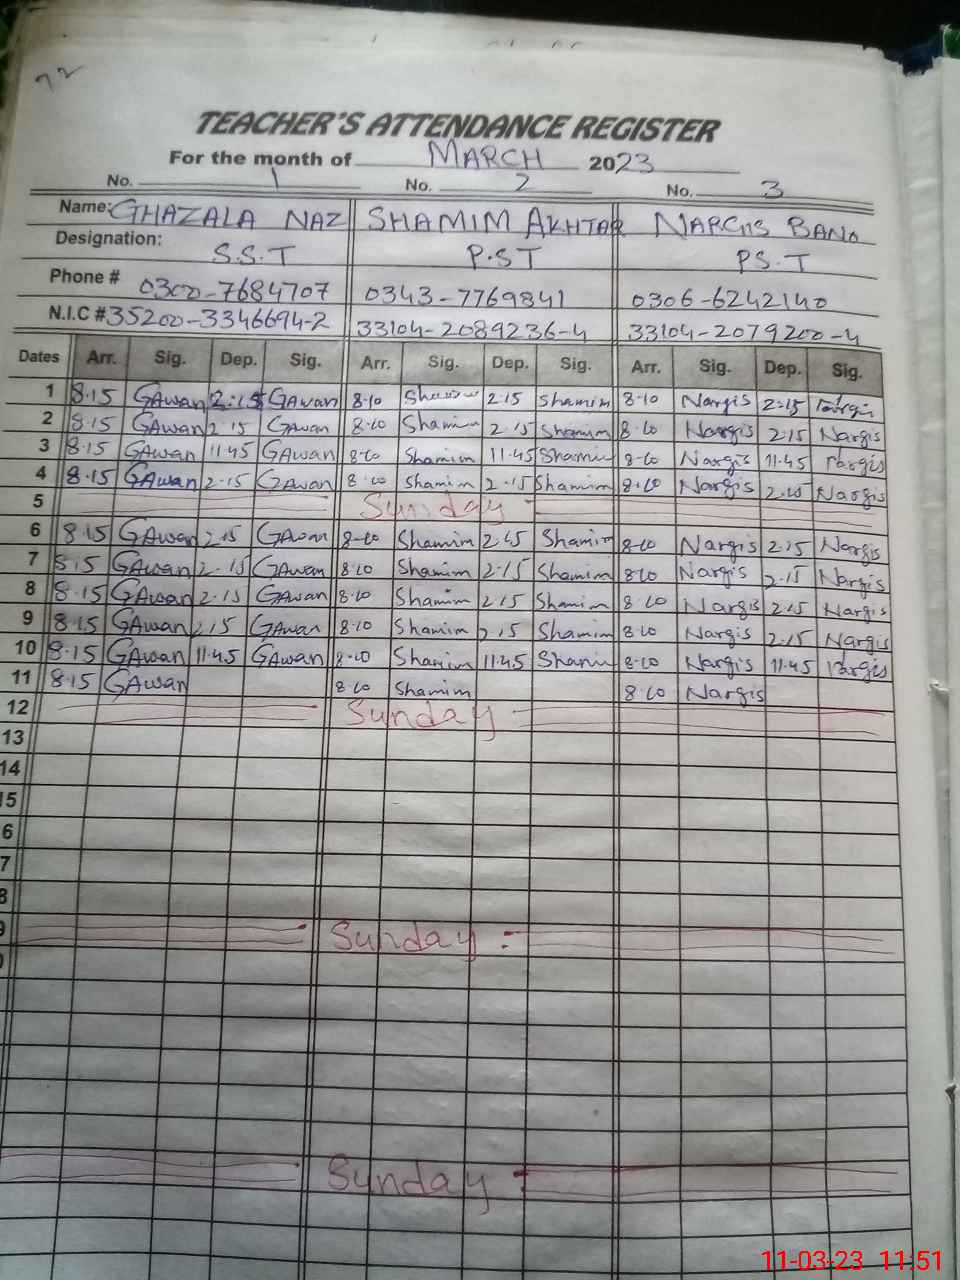 72
TEACHER'S ATTENDANCE REGISTER
For the month of MARCH 2023
No. 1 No. 2 No. 3
Name: GHAZALA NAZ SHAMIM AKHTAR NARGIS BANO
Designation: S.S.T P.ST PS.T
Phone # 0300-7684707 0343-7769841 0306-6242140
N.I.C # 35200-3346694-2 33104-2089236-4 33104-2079200-4
Dates Arr. Sig. Dep. Sig. Arr. Sig. Dep. Sig. Arr. Sig. Dep. Sig.
1 8.15 GAwan 2.15 GAwan 8-10 Shamim 2.15 Shamim 8-10 Nargis 2-15 Nargis
2 8.15 GAwan 2.15 GAwan 8.10 Shamim 2.15 Shamim 8-10 Nargis 2.15 Nargis
3 8.15 GAwan 11.45 GAwan 8-10 Shamim 11.45 Shamim 8-10 Nargis 11.45 Nargis
4 8.15 GAwan 2.15 GAwan 8.10 Shamim 2.15 Shamim 8.10 Nargis Nargis
5 Sunday
6 8.15 GAwan 2.15 GAwan 8-10 Shamim 2.15 Shamim 8-10 Nargis 2.15 Nargis
7 8.15 GAwan 2.15 GAwan 8.10 Shamim 2.15 Shamim 810 Nargis 2.15 Nargis
8 8.15 GAwan 2.15 GAwan 8.10 Shamim 2.15 Shamim 8.10 Nargis 2.15 Nargis
9 8.15 GAwan 2.15 GAwan 8.10 Shamim 2.15 Shamim 8.10 Nargis 2.15 Nargis
10 8.15 GAwan 11.45 GAwan 8-10 Shamim 11.45 Shamim 8-10 Nargis 11.45 Nargis
11 8.15 GAwan 8.10 Shamim 8.10 Nargis
12 Sunday
13
14
15
6
7
8
9 Sunday
Sunday
11-03-23 11:51